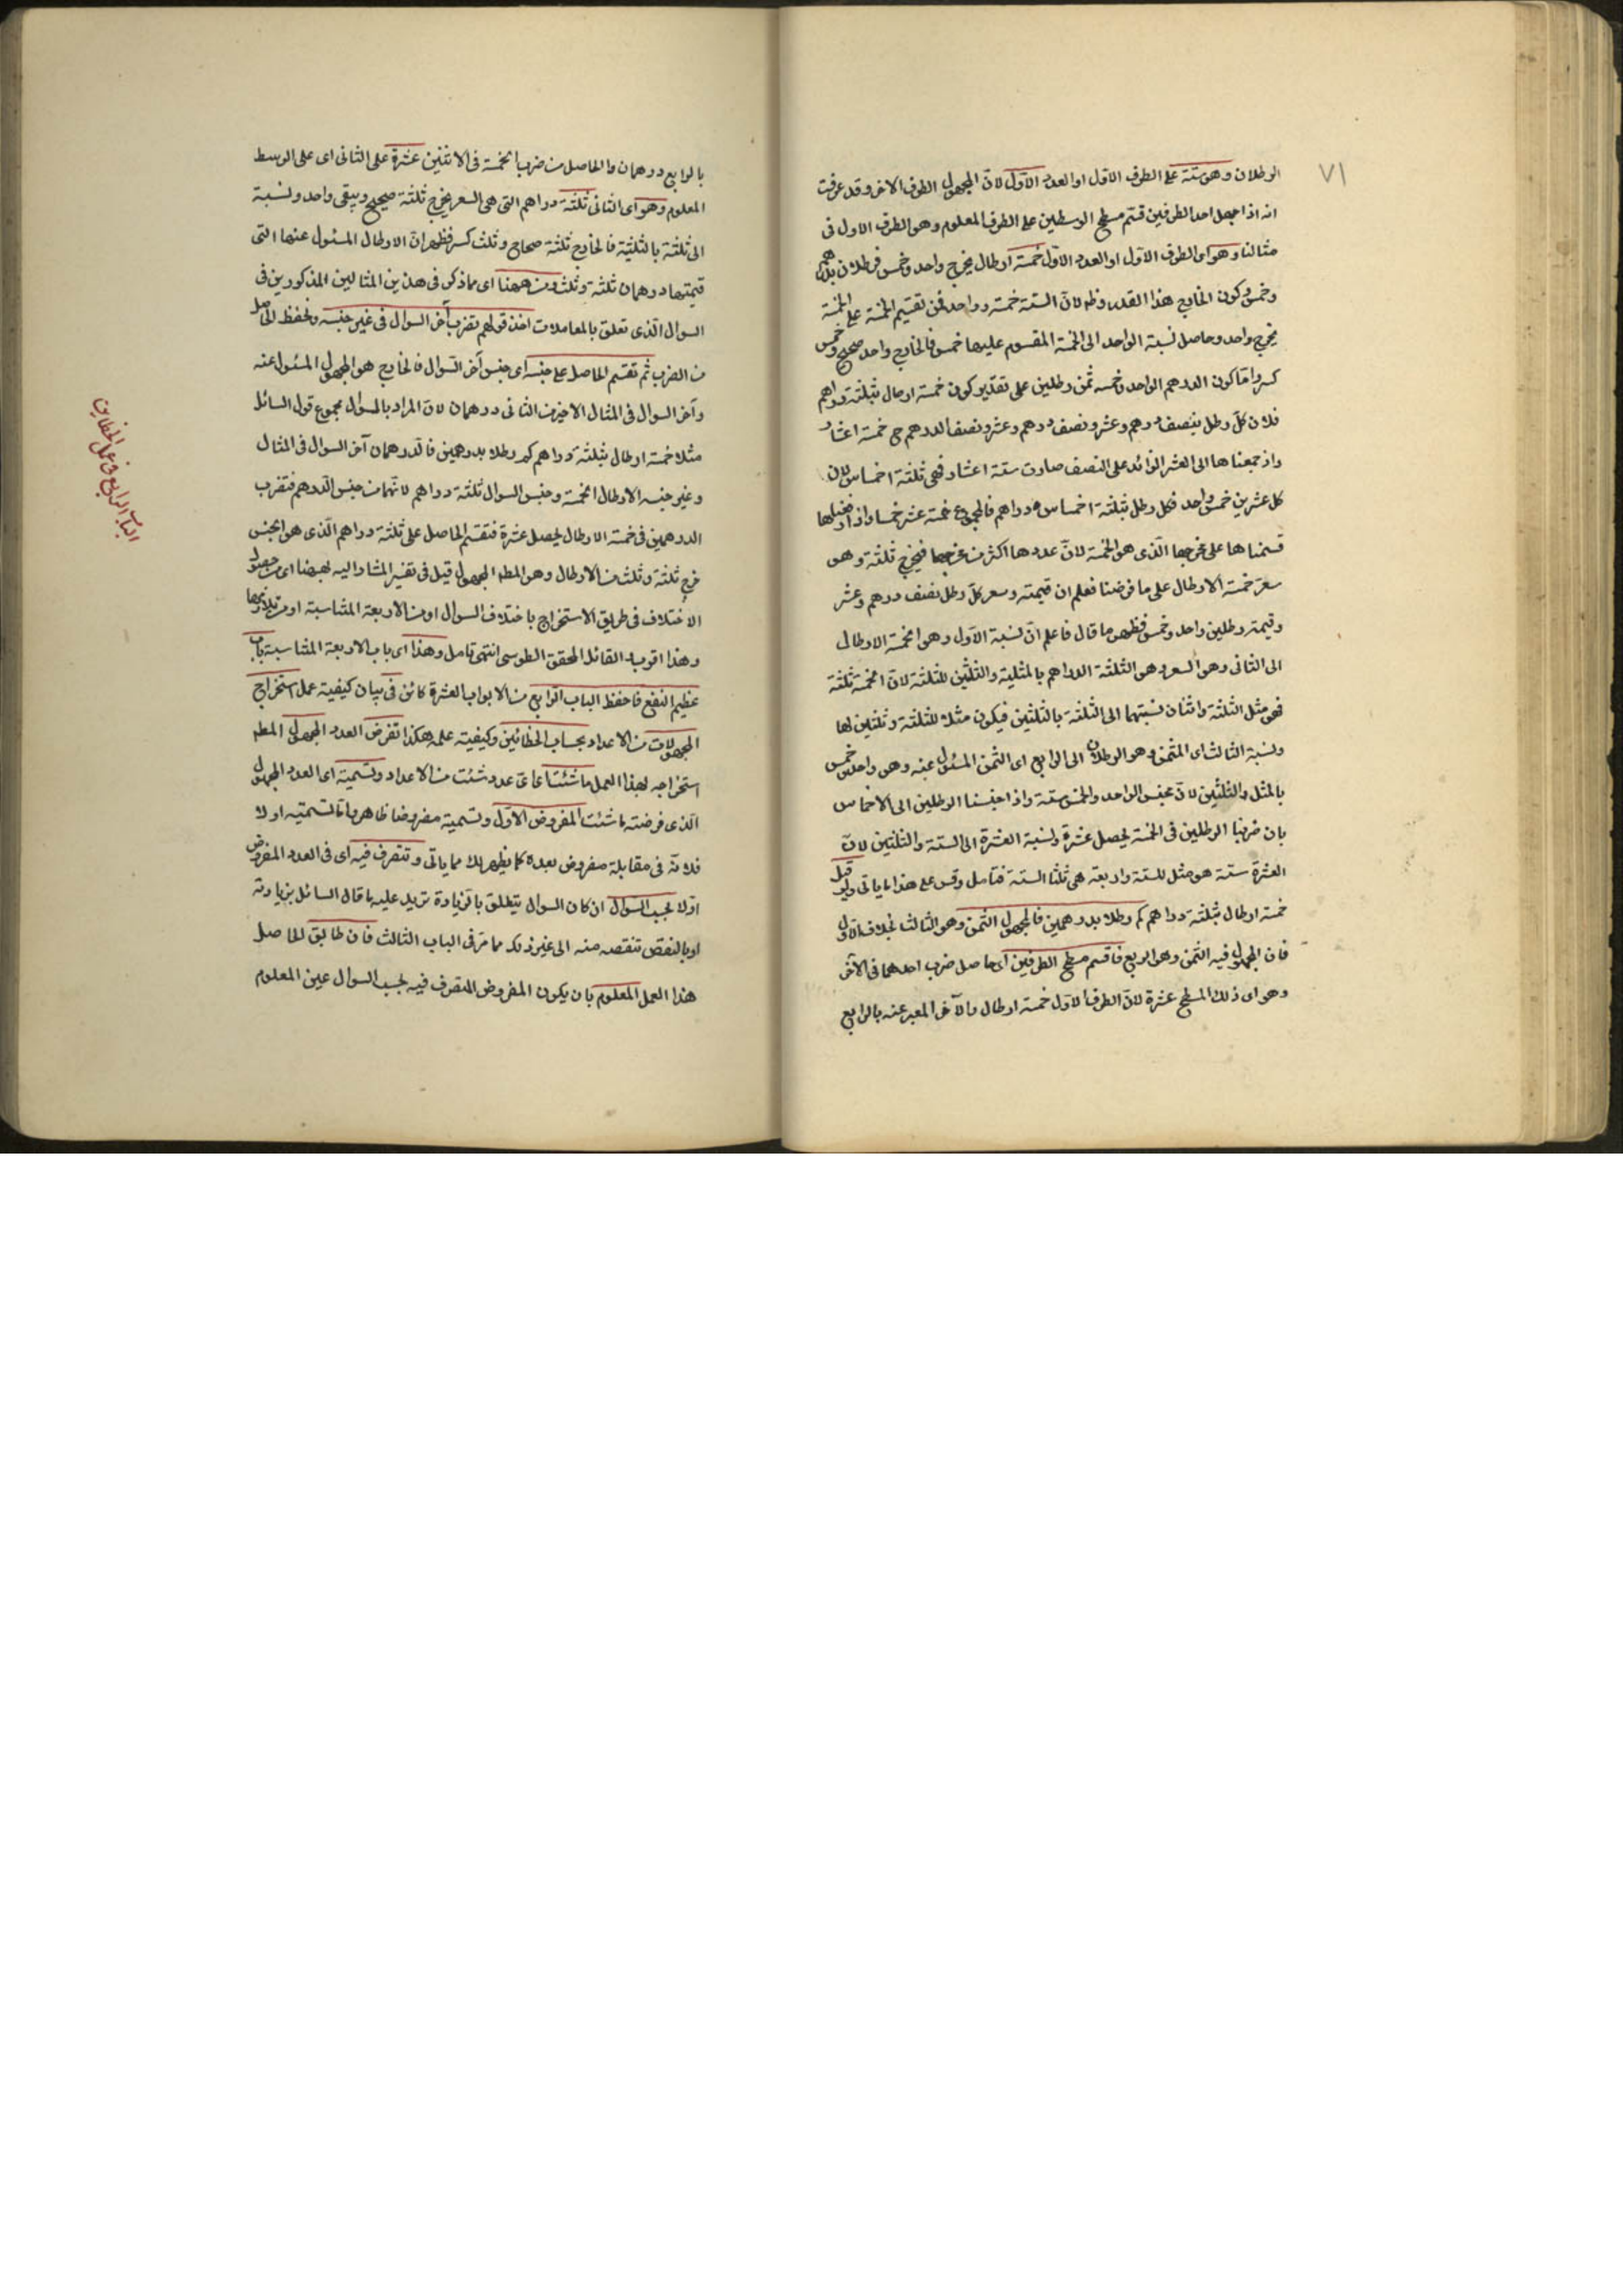 ٧١
الرطلان وهو ستة على الطرف الاول او العدد الاول لان المجهول الطرف الاخر وقد عرفت
انه اذا جهل احد الطرفين قسم مسطح الوسطين على الطرف المعلوم وهو الطرف الاول فى
مثالنا وهو اى الطرف الاول او العدد الاول خمسة ارطال يخرج واحد وخمس فرطلان بدرهم
وخمس وكون الخارج هذا القدر وظ لان الستة خمسة وواحد فمن تقسيم الخمسة على الخمسة
يخرج واحد وحاصل نسبة الواحد الى الخمسة المقسوم عليها خمس فالخارج واحد صحيح وخمس
كسر واما كون الدرهم الواحد وخمسه ثمن رطلين على تقدير كون خمسة ارطال بثلثة دراهم
فلان كل رطل بنصف درهم وعشر ونصف درهم وعشر ونصف الدرهم ح خمسة اعشار
واذ جمعناها الى العشر الزائد على النصف صارت ستة اعشار فهى ثلثة اخماس لان
كل عشرين خمس واحد فكل رطل بثلثة اخماس دراهم فالمجموع خمسة عشر خمسا واذا
قسمناها على مخرجها الذى هو الخمسة لان عددها اكثر من مخرجها فيخرج ثلثة وهو
سعر خمسة الارطال على ما فرضنا فعلم ان قيمته وسعر كل رطل نصف درهم وعشر
وقيمة رطلين واحد وخمس فظهر ما قال فاعلم ان نسبة الاول وهو الخمسة الارطال
الى الثانى وهو السعر وهو الثلثة الدراهم بالمثلية والثلثين للثلثة لان الخمسة ثلثة
فهى مثل الثلثة واثنان نسبتهما الى الثلثة بالثلثين فيكون مثلا للثلثة وثلثين لها
ونسبة الثالث اى المثمن وهو الرطلان الى الرابع اى الثمن المسئول عنه وهو واحد وخمس
بالمثل والثلثين لان مجنس الواحد والخمس ستة واذا جنسنا الرطلين الى الاخماس
بان ضربنا الرطلين فى الخمسة يحصل عشرة ونسبة العشرة الى الستة والثلثين لان
العشرة ستة هو مثل للستة واربعة هى ثلثا الستة فتامل وقس على هذا ما ياتى ولو قيل
خمسة ارطال بثلثة دراهم كم رطلا بدرهمين فالمجهول المثمن وهو الثالث بخلاف الاول
فان المجهول فيه الثمن وهو الرابع فاقسم مسطح الطرفين اى حاصل ضرب احدهما فى الاخر
وهو اى ذلك المسطح عشرة لان الطرف الاول خمسة ارطال والآخر المعبر عنه بالرابع
بالرابع درهمان والحاصل من ضرب الخمسة فى الاثنين عشرة على الثانى اى على الوسط
المعلوم وهو اى الثانى ثلثة دراهم التى هى السعر يخرج ثلثة صحيح ويبقى واحد ونسبة
الى ثلثة بالثلثية فالخارج ثلثة صحاح وثلث كسر فظهر ان الارطال المسئول عنها التى
قيمتها درهمان ثلثة وثلث ومن ههنا اى مما ذكر فى هذين المثالين المذكورين فى
السوال الذى تعلق بالمعاملات اخذ قولهم تضرب آخر السوال فى غير جنسه وتحفظ الحاصل
من الضرب ثم تقسم الحاصل على جنسه اى جنس آخر السوال فالخارج هو المجهول المسئول عنه
وآخر السوال فى المثال الاخير من الثانى درهمان لان المراد بالسؤال مجموع قول السائل
مثلا خمسة ارطال بثلثة دراهم كم رطلا بدرهمين فالدرهمان آخر السوال فى المثال
وغير جنسه الارطال الخمسة وجنس السوال ثلثة دراهم لانهما من جنس الدرهم فتضرب
الدرهمين فى خمسة الارطال يحصل عشرة فتقسم الحاصل على ثلثة دراهم الذى هو الجنس
خرج ثلثة وثلث من الارطال وهو المطه المجهول قيل فى تفسير المشار اليه لههنا اى من حصول
الاختلاف فى طريق الاستخراج باختلاف السوال او من الاربعة المتناسبة او من
وهذا اقرب القائل المحقق الطوسى انتهى تامل وهذا اى باب الاربعة المتناسبة باب
عظيم النفع فاحفظ الباب الرابع من الابواب العشرة كائن فى بيان كيفية عمل استخراج
المجهولات من الاعداد بحساب الخطائين وكيفية عمله هكذا تفرض العدد المجهول المطه
استخراجه بهذا العمل ما شئت اى اى عدد شئت من الاعداد وتسميه اى العدد المجهول
الذى فرضته ما شئت المفروض الاول وتسمية مفروضا ظاهر واما تسمتيه اولا
فلانه فى مقابلة مفروض بعده كما يظهر لك مما ياتى وتتصرف فيه اى فى العدد المفروض
اولا بحسب السوال ان كان السوال يتعلق بالزيادة تزيد عليه ما قال السائل بزيادته
او بالنقص تنقصه منه الى غير ذلك مما مر فى الباب الثالث فان طابق الحاصل
هذا العمل المعلوم بان يكون المفروض المتصرف فيه بحسب السوال عين المعلوم
الباب الرابع فى عمل الخطاين